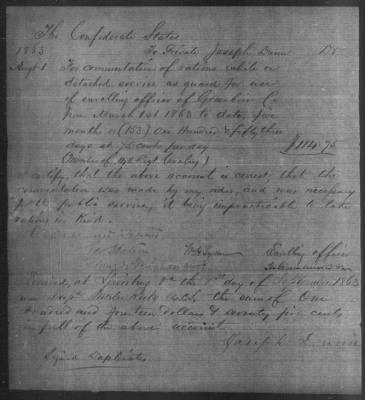 The Confederate States
1863 To Private Joseph Dunn Dr
Augt 1 For commutation of rations while on
detached service as guard for use
of enrolling officer of Grainger Co
from March 1st 1863 to date, five
months or (153) One Hundred & fifty three
days at 75 cents per day $114.75
(Member of Regt Cavalry)
I certify, that the above account is correct; that the
commutation was made by my order, and was necessary
for the public service, it being impracticable to take
rations in kind.
Enrolling officer
Received, at this 1st day of September 1863
from Capt the sum of One
Hundred and fourteen Dollars & seventy five cents
in full of the above account.
Joseph Dunn
Signed Duplicates